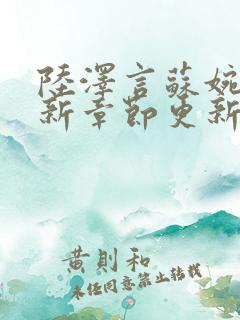 陸澤言蘇婉
新章節更新
黃則和
未經同意禁止轉載